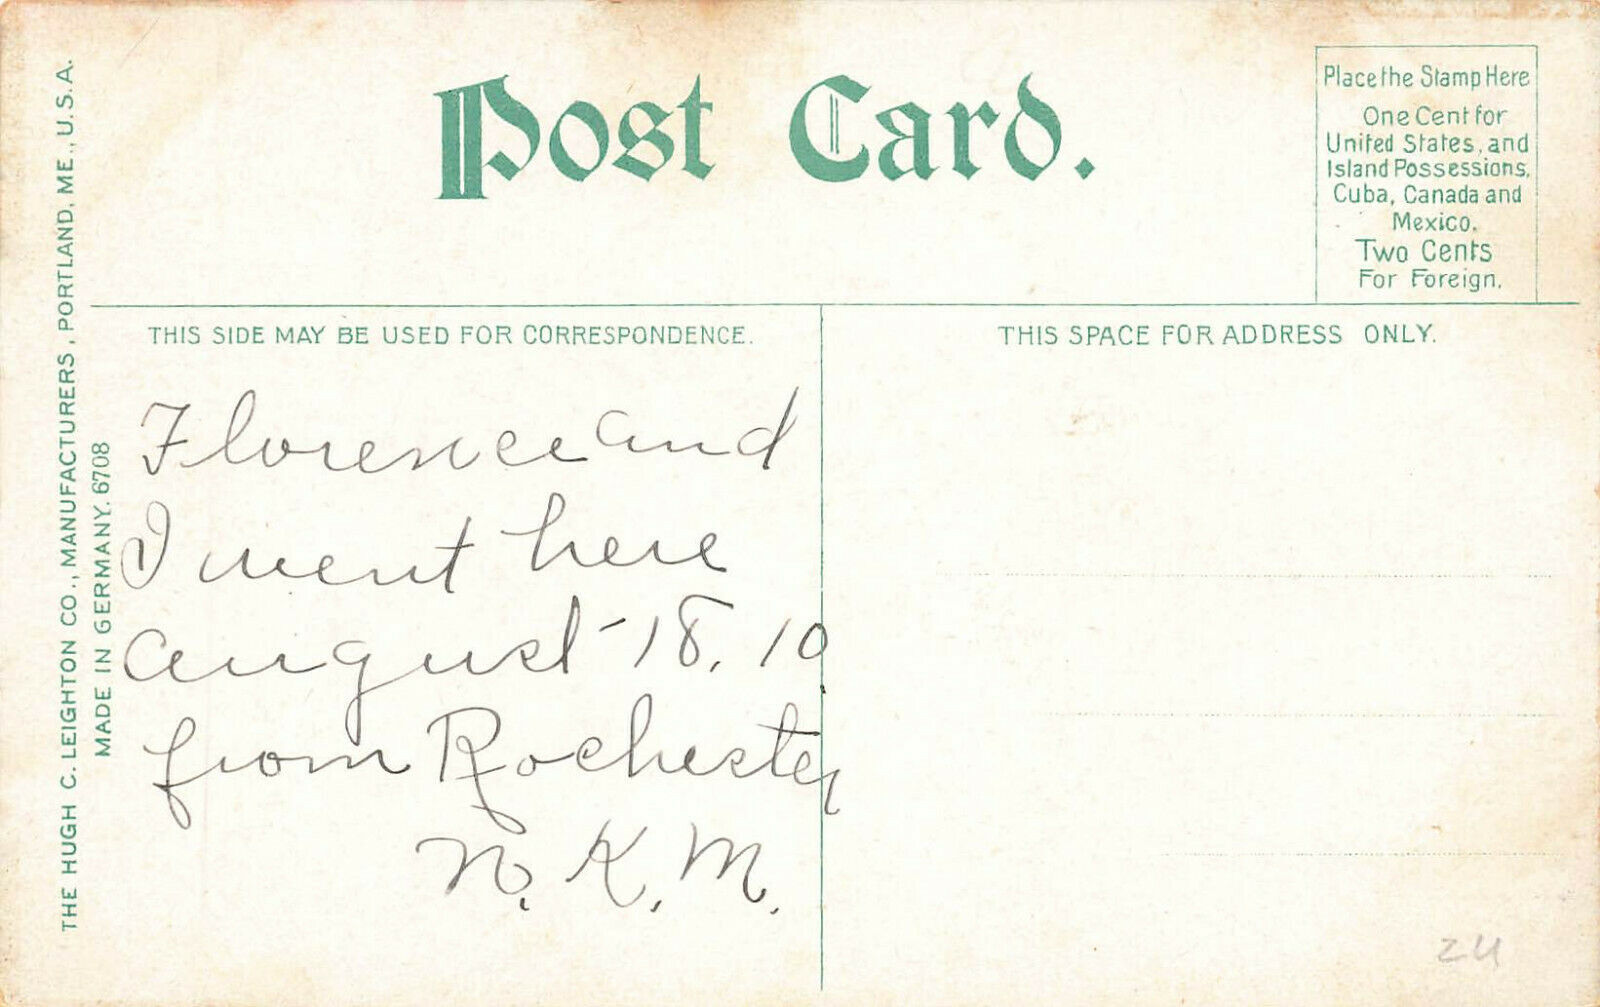 Post Card.
Place the Stamp Here
One Cent for
United States, and
Island Possessions,
Cuba, Canada and
Mexico.
Two Cents
For Foreign.
THE HUGH C. LEIGHTON CO., MANUFACTURERS, PORTLAND, ME., U.S.A.
MADE IN GERMANY. 6708
THIS SIDE MAY BE USED FOR CORRESPONDENCE.
THIS SPACE FOR ADDRESS ONLY.
Florence and
I went here
august 18, 10
from Rochester
N. K. M.
24